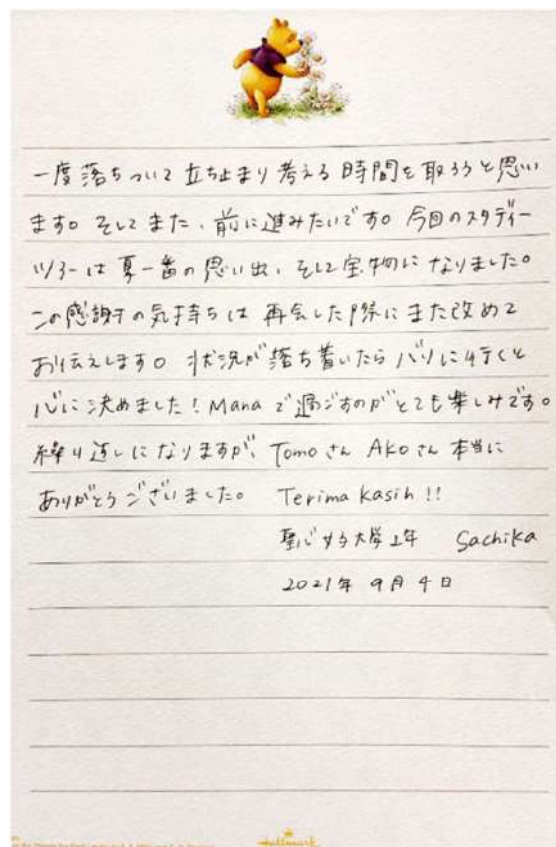 一度落ちついて立ち止まり考える時間を取ろうと思い
ます。そしてまた、前に進みたいです。今回のスタディー
ツアーは夏一番の思い出、そして宝物になりました。
この感謝の気持ちは再会した際にまた改めて
お伝えします。状況が落ち着いたらバリに行くと
心に決めました！Manaで過ごすのがとても楽しみです。
繰り返しになりますが、TomoさんAkoさん本当に
ありがとうございました。Terima kasih!!
聖心女子大学2年 Sachika
2021年9月4日
Hallmark